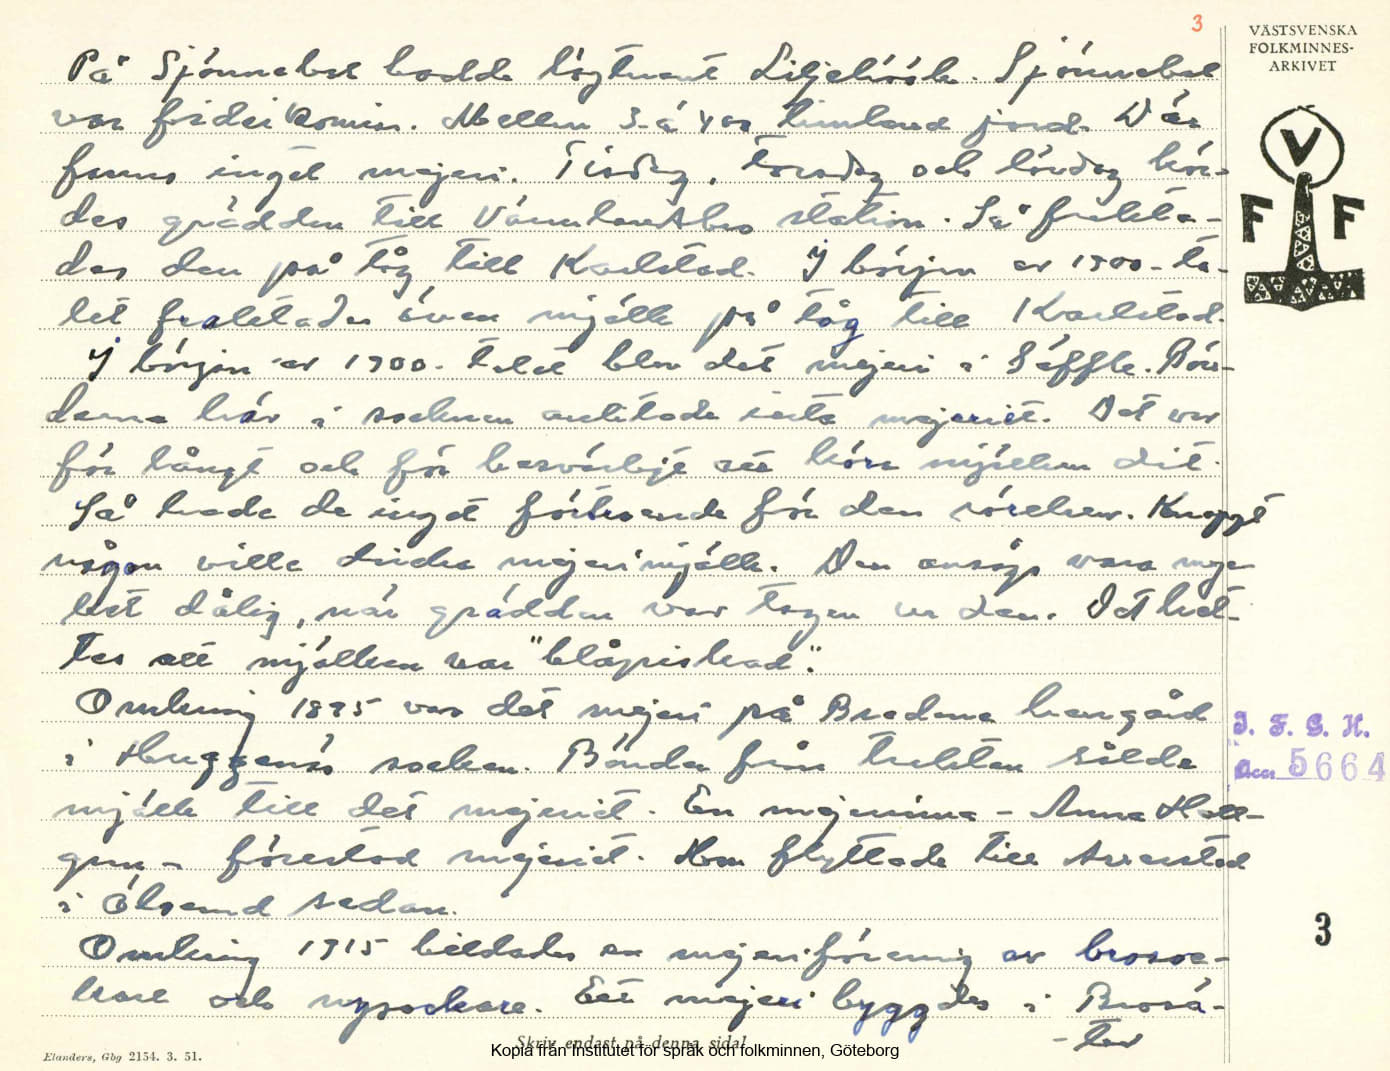 3
VÄSTSVENSKA
FOLKMINNES-
ARKIVET
På Sjönnebol bodde löjtnant Liljehöök. Sjönnebol
var fideikomiss. Mellan 3- á 400 tunland jord. Där
fanns inget mejeri. Tisdag, torsdag och lördag kör-
des grädden till Värmlandsbro station. Så frakta-
des den på tåg till Karlstad. I början av 1900-ta-
let fraktades även mjölk på tåg till Karlstad.
I början av 1900-talet blev det mejeri i Säffle. Bön-
derna här i socknen anlitade inte mejeriet. Det var
för långt och för besvärligt att köra mjölken dit.
Så hade de inget förtroende för den rörelsen. Knappt
någon ville dricka mejerimjölk. Den ansågs vara myc-
ket dålig, när grädden var tagen ur den. Det het-
tes att mjölken var "blåpiskad".
Omkring 1895 var det mejeri på Bredene herrgård
i Huggenäs socken. Bönder från trakten sålde
mjölk till det mejeriet. En mejerinna - Anna Hall-
gren - förestod mejeriet. Hon flyttade till Årrestad
i Ölserud sedan.
Omkring 1915 bildades en mejeriförening av brosoc-
kare och nysockare. Ett mejeri byggdes i Brosä-
-ter
V
F F
I. F. G. H.
Acc. 5664
3
Skriv endast på denna sida!
Elanders, Gbg 2154. 3. 51.
Kopia från Institutet för språk och folkminnen, Göteborg